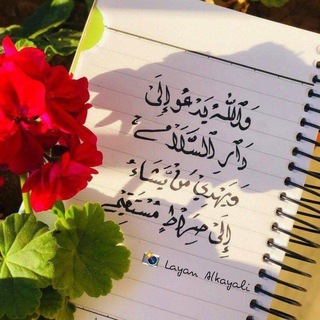 وَاللَّهُ يَدْعُو إِلَى
دَارِ السَّلَامِ
وَيَهْدِي مَنْ يَشَاءُ
إِلَى صِرَاطٍ مُسْتَقِيمٍ
Layan Alkayali